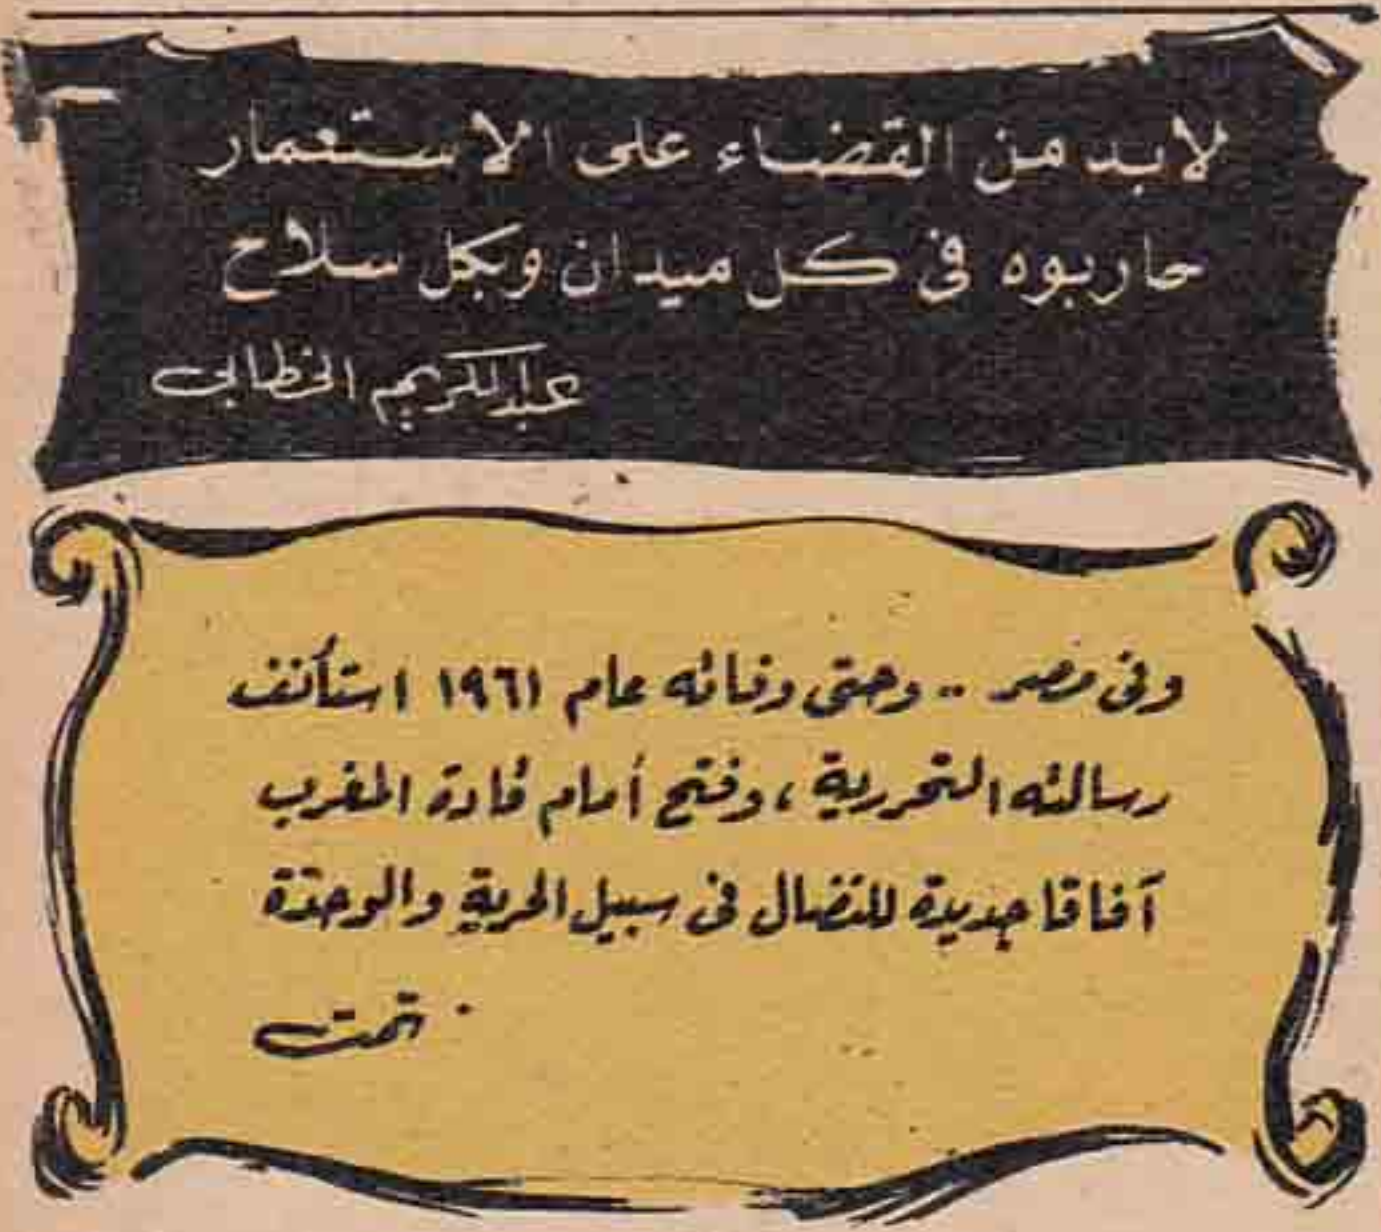 لابد من القضاء على الاستعمار
حاربوه فى كل ميدان وبكل سلاح
عبد الكريم الخطابى
وفى مصر .. وحتى وفاته عام ١٩٦١ استأنف
رسالته التحررية ، وفتح أمام قادة المغرب
آفاقا جديدة للنضال فى سبيل الحرية والوحدة
. تمت